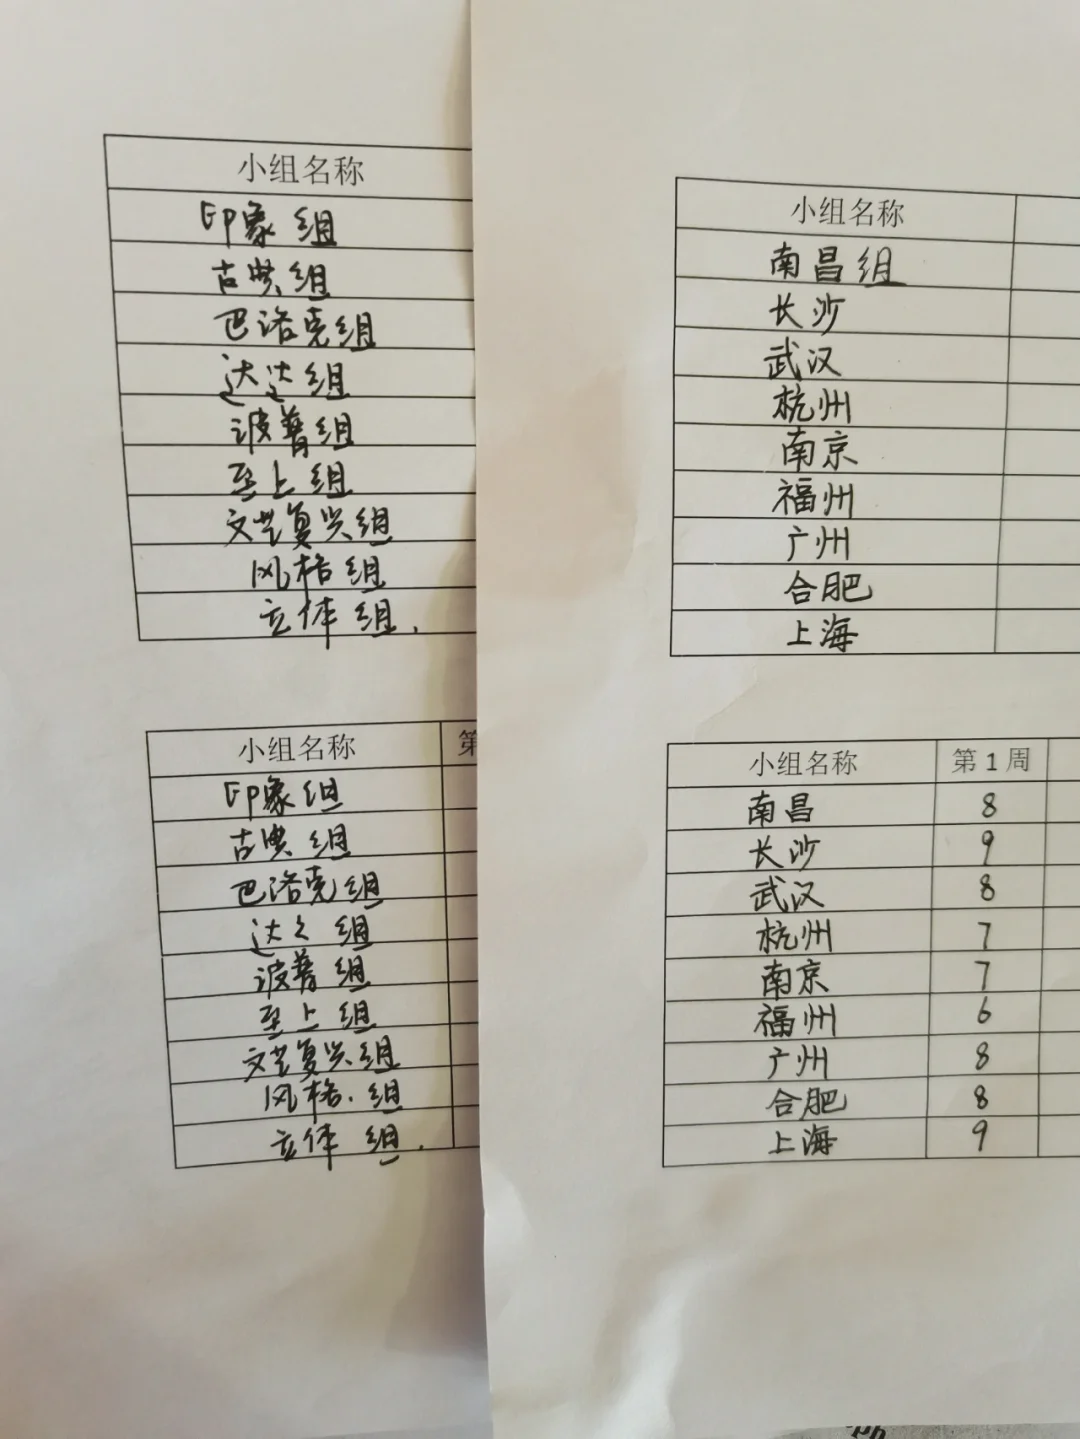 小组名称
印象组
古典组
巴洛克组
达达组
波普组
至上组
文艺复兴组
风格组
立体组.
小组名称 第
印象组
古典组
巴洛克组
达々组
波普组
至上组
文艺复兴组
风格.组
立体组.
小组名称
南昌组
长沙
武汉
杭州
南京
福州
广州
合肥
上海
小组名称 第1周
南昌 8
长沙 9
武汉 8
杭州 7
南京 7
福州 6
广州 8
合肥 8
上海 9